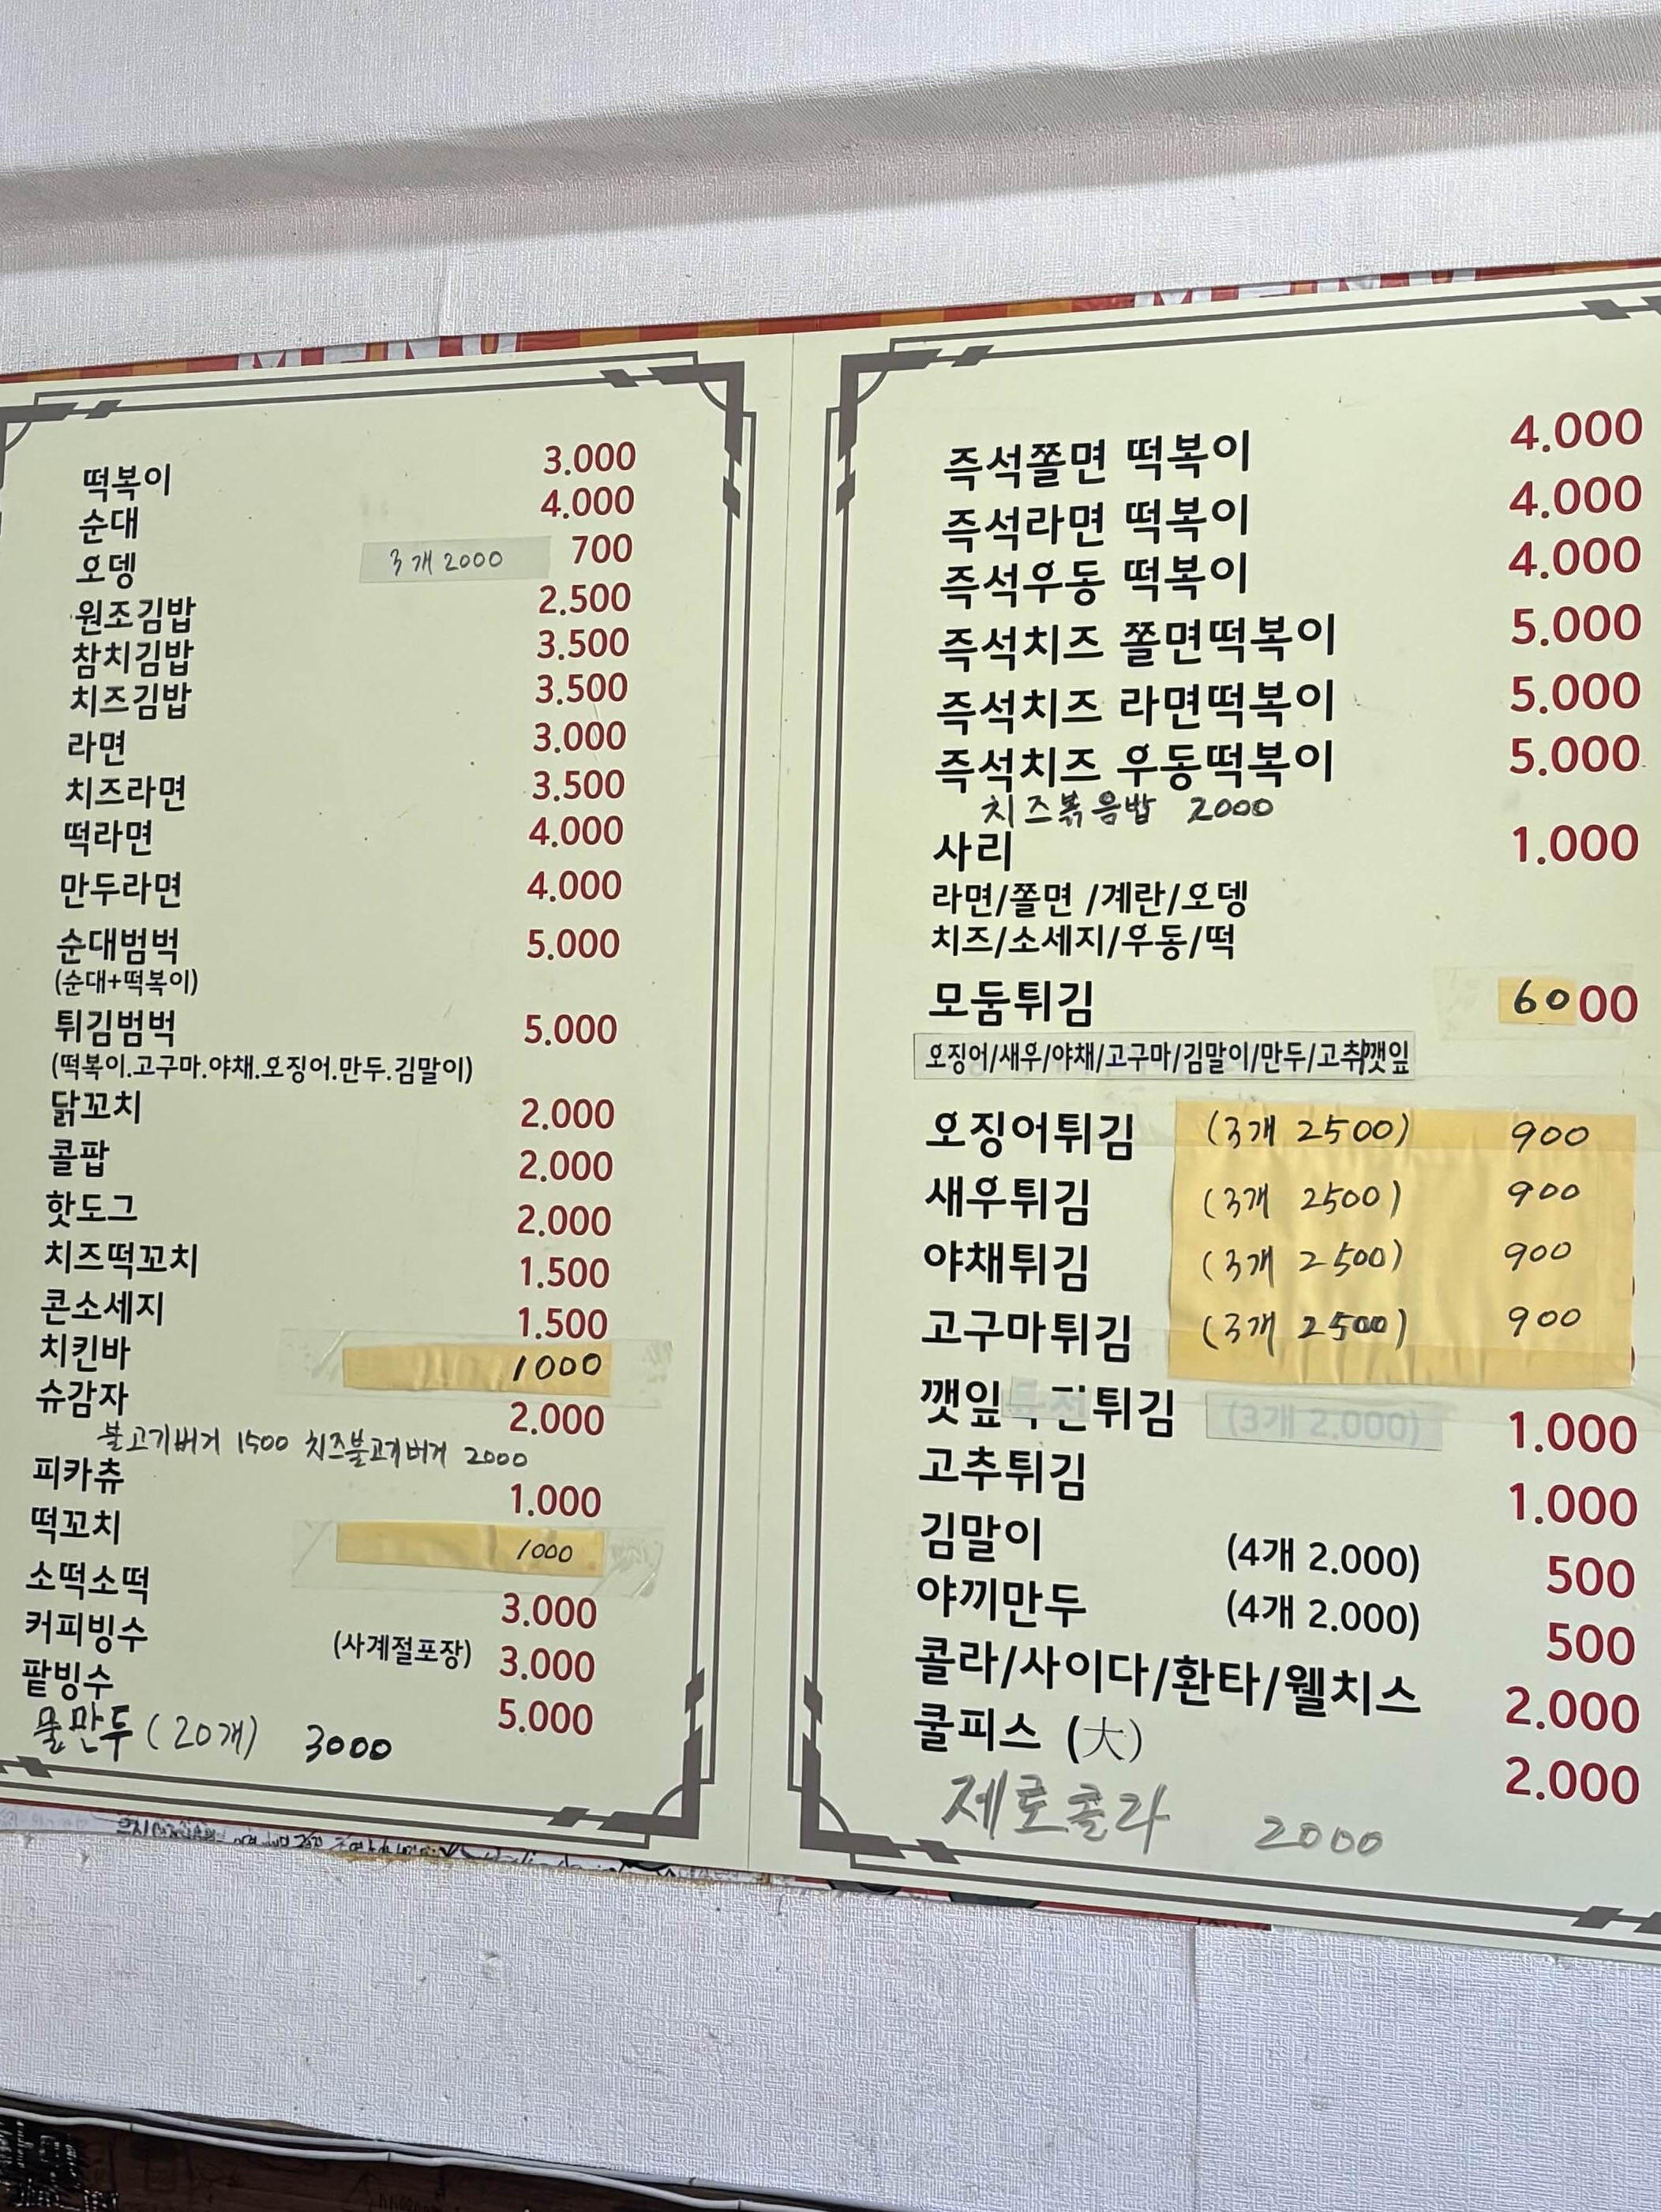 MENU
떡복이 3.000
순대 4.000
오뎅 3개 2000 700
원조김밥 2.500
참치김밥 3.500
치즈김밥 3.500
라면 3.000
치즈라면 3.500
떡라면 4.000
만두라면 4.000
순대범벅 5.000
(순대+떡복이)
튀김범벅 5.000
(떡복이.고구마.야채.오징어.만두.김말이)
닭꼬치 2.000
콜팝 2.000
핫도그 2.000
치즈떡꼬치 1.500
콘소세지 1.500
치킨바 1000
슈감자 2.000
불고기버거 1500 치즈불고기버거 2000
피카츄 1.000
떡꼬치 1000
소떡소떡 3.000
커피빙수 (사계절포장) 3.000
팥빙수 5.000
물만두 (20개) 3000
MENU
즉석쫄면 떡복이 4.000
즉석라면 떡복이 4.000
즉석우동 떡복이 4.000
즉석치즈 쫄면떡복이 5.000
즉석치즈 라면떡복이 5.000
즉석치즈 우동떡복이 5.000
치즈볶음밥 2000
사리 1.000
라면/쫄면 /계란/오뎅
치즈/소세지/우동/떡
모둠튀김 6000
오징어/새우/야채/고구마/김말이/만두/고추/깻잎
오징어튀김 (3개 2500) 900
새우튀김 (3개 2500) 900
야채튀김 (3개 2500) 900
고구마튀김 (3개 2500) 900
깻잎 튀김 (3개 2.000) 1.000
고추튀김 1.000
김말이 (4개 2.000) 500
야끼만두 (4개 2.000) 500
콜라/사이다/환타/웰치스 2.000
쿨피스 (大) 2.000
제로콜라 2000